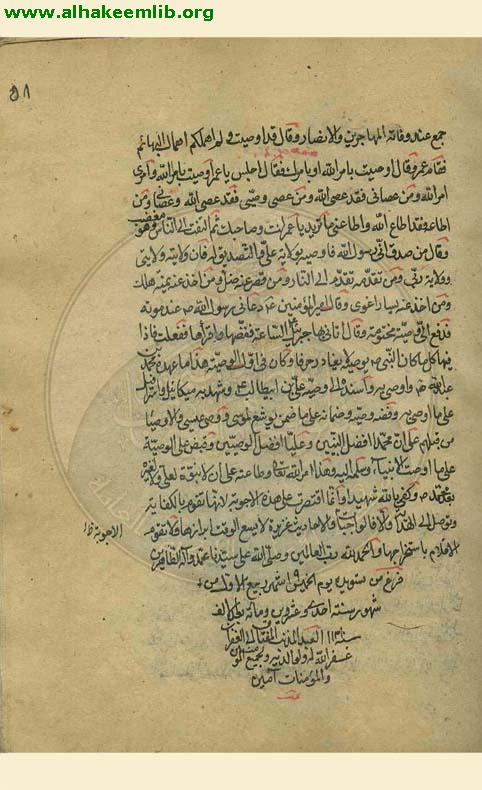 www.alhakeemlib.org
٥٨
جمع عند وفاته المهاجرين والانصار وقال قد اوصيت ولم اهملكم اهمال البهائم
فقام عمر وقال اوصيت بامر الله او بامرك فقال اجلس يا عمر اوصيت بامر الله وامري
امر الله ومن عصاني فقد عصى الله ومن عصى وصيي فقد عصى الله وعصاني ومن
اطاعه فقد اطاع الله واطاعني ما تريد يا عمر انت وصاحبك ثم التفت الى الناس وهو مغضب
وقال من صدق اني رسول الله فاوصيه بولاية علي والتصديق له فان ولايته ولايتي
وولاية ربي ومن تقدمه تقدم الى النار ومن قصر عنه ضل ومن اخذ عنه يمنة هلك
ومن اخذ عنه يسارا غوى وقال امير المؤمنين ع دعاني رسول الله ص عند موته
فدفع الي وصية مختومة وقال اتاني بها جبرئيل الساعة ففضها واقراها ففعلت فاذا
فيها كل ما كان النبي ص يوصي به حرفا وكان في اول الوصية هذا ما عهد محمد بن
عبد الله ص واوصى به واسنده الى وصيه علي بن ابيطالب ع وشهد ميكائيل واسرافيل
على ما اوصى به وقبضه وصيه وضمانه على ما ضمن يوشع لموسى ووصي عيسى والاوصياء
من قبلهم على ان محمدا افضل النبيين وعليا افضل الوصيين وقبض علي الوصية
على ما اوصت الانبياء وسلمه اليه وهذا امر الله تعالى وطاعته على ان لا نبوة لعلي ولا لغيره
بعد محمد ص وكفى بالله شهيدا وانما اقتصرت على هذه الاجوبة لانها تقوم بالكفاية
وتوصل الى الهداية والا فالواجبات والاحاديث غزيرة لا يسع الوقت ابرازها ولا تقوم
الاقلام باستخراجها والحمد لله رب العالمين وصلى الله على سيدنا محمد وآله الطاهرين
الاجوبة
فرغ من تسويده يوم الخميس شهر ربيع الاول من
شهور سنة احدى وعشرين ومائة بعد الالف
سنة ١١٢١ العبد المذنب
غفر الله له ولوالديه ولجميع المؤمنين
والمؤمنات آمين